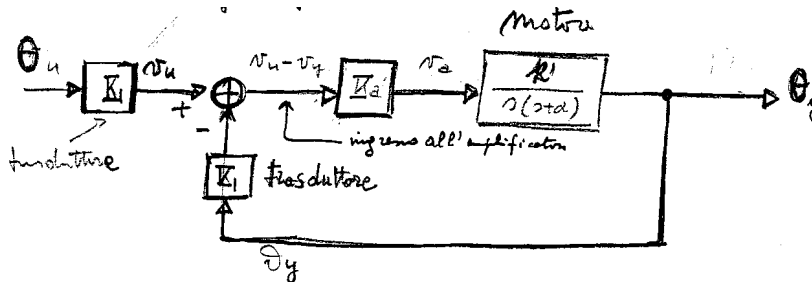 Motore
θu K1 vu + vu-vy Ka va k' / s(s+a) θy
-
trasduttore
ingresso all'amplificatore
K1 trasduttore
θy